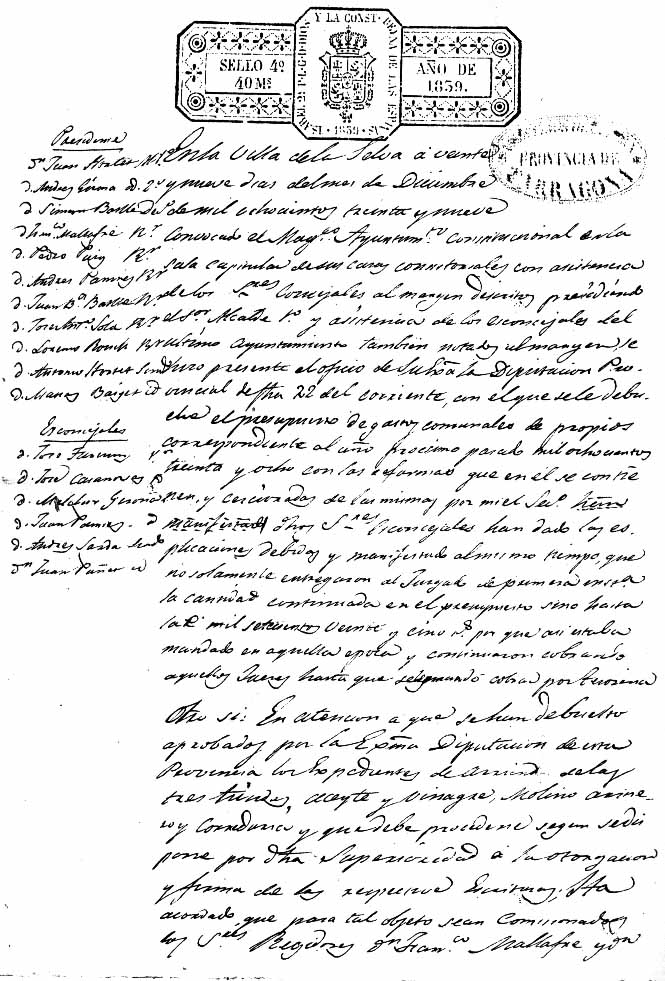 SELLO 4º
40 Mˢ
AÑO DE
1839.
Y LA CONST.
1839
PROVINCIA DE
TARRAGONA
Presidente
Dⁿ Juan
D. Andres
D. Simon Batlle
Mallafré Rʳ
D. Pedro Puig Rʳ
D. Andres Pamies Rʳ
D. Juan Bᵃ Batlle Rʳ
D. Sola Rʳ
D. Lorenso
D. Antonio
D. Baiget id
Esconcejales
D. Tore
D. Tore Casanovas
D. Melchor Girona
D. Juan Pamies
D. Andres Sarda
Dⁿ Juan id
En la Villa de la Selva á veinte
y nueve dias del mes de Diciembre
de mil ochocientos treinta y nueve
Convocado el Magᶜᵒ Ayuntamᵗᵒ Constitucional en la
sala capitular de sus casas consistoriales con asistencia
de los Sʳᵉˢ Concejales al margen descritos presidiendo
el Sᵒʳ Alcalde 1º y asistencia de los esconcejales del
ultimo Ayuntamiento tambien notados al margen, se
tuvo presente el oficio de la Diputacion Pro-
vincial de fha 22 del corriente, con el que se le debu-
elve el presupuesto de gastos comunales de propios
correspondiente al año procsimo pasado mil ochocientos
treinta y ocho con las reformas que en él se contie
nen, y cerciorados de las mismas por mi el Secº
manifestado dhos Sʳᵉˢ Esconcejales han dado las es-
plicaciones debidas y manifestado al mismo tiempo, que
no solamente entregaron al Juzgado de primera instᵃ
la cantidad continuada en el presupuesto sino hasta
la de mil setecientos veinte y cinco rˢ por que asi estaba
mandado en aquella epoca y continuaron cobrando
aquellos Jueces hasta que se mandó cobrar por tesoreria
Otro si: En atencion a que se han debuelto
aprobados por la Exmᵃ Diputacion de esta
Provincia los Expedientes de Arriendᵒ de las
tres tiendas, aceyte y vinagre, Molino arine-
ro y Correduria, y que debe procederse segun se dis
pone por dha Superioridad á la otorgacion
y firma de las respective Escrituras, Ha
acordado, que para tal objeto sean Comisionados
los Sʳᵉˢ Regidores Dⁿ Franᶜᵒ Mallafré y Dⁿ